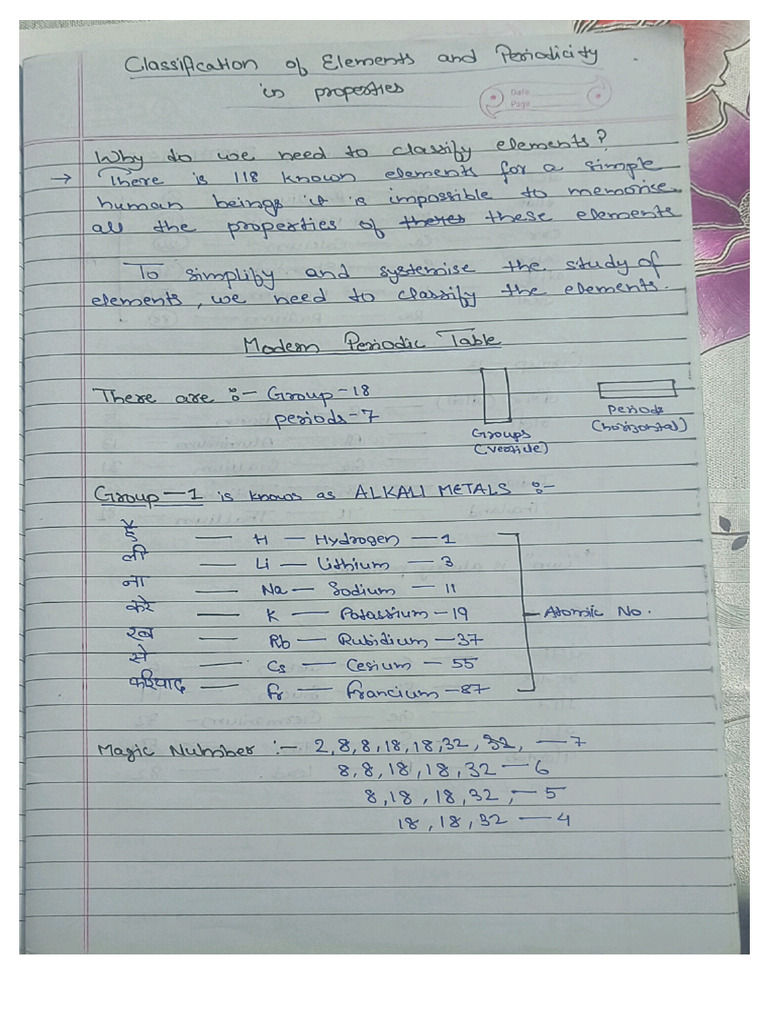 Classification of Elements and Periodicity
in properties
Date
Page
Why do we need to classify elements?
→ There is 118 known elements for a simple
human beings it is impossible to memorise
all the properties of theres these elements
To simplify and systemise the study of
elements, we need to classify the elements.
Modern Periodic Table
There are :- Group-18
periods-7
Groups
(verticle)
Periods
(horizontal)
Group-1 is known as ALKALI METALS :-
है — H — Hydrogen — 1
ली — Li — Lithium — 3
ना — Na — Sodium — 11
करे — K — Potassium — 19
रब — Rb — Rubidium — 37
से — Cs — Cesium — 55
फरियाद — Fr — Francium — 87
Atomic No.
Magic Number :- 2, 8, 8, 18, 18, 32, 32, — 7
8, 8, 18, 18, 32 — 6
8, 18, 18, 32, — 5
18, 18, 32 — 4